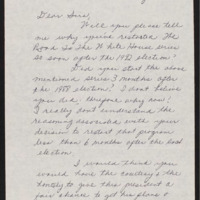 Dear Sirs,
Will you please tell
me why you've restarted The
Road To The White House series
so soon after the 1992 election?
Did you start the above
mentioned series 3 months after
the 1988 election? I don't believe
you did. Anyone why now?
I really don't understand the
reasoning associated with your
decision to restart that program
less than 6 months after the last
election.
I would think you
would have the courtesy & the
honesty to give this president a
fair chance to get his plans &